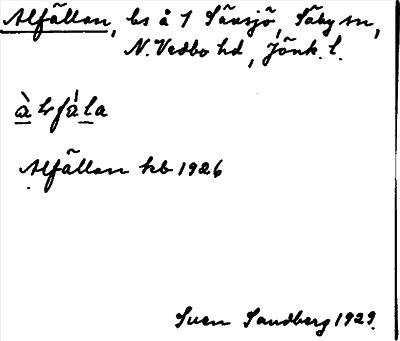 Alfällan, ls å 1 Sävsjö, Säby sn,
N. Vedbo hd, Jönk. l.
Alfällan kb 1926
Sven Sandberg 1929.